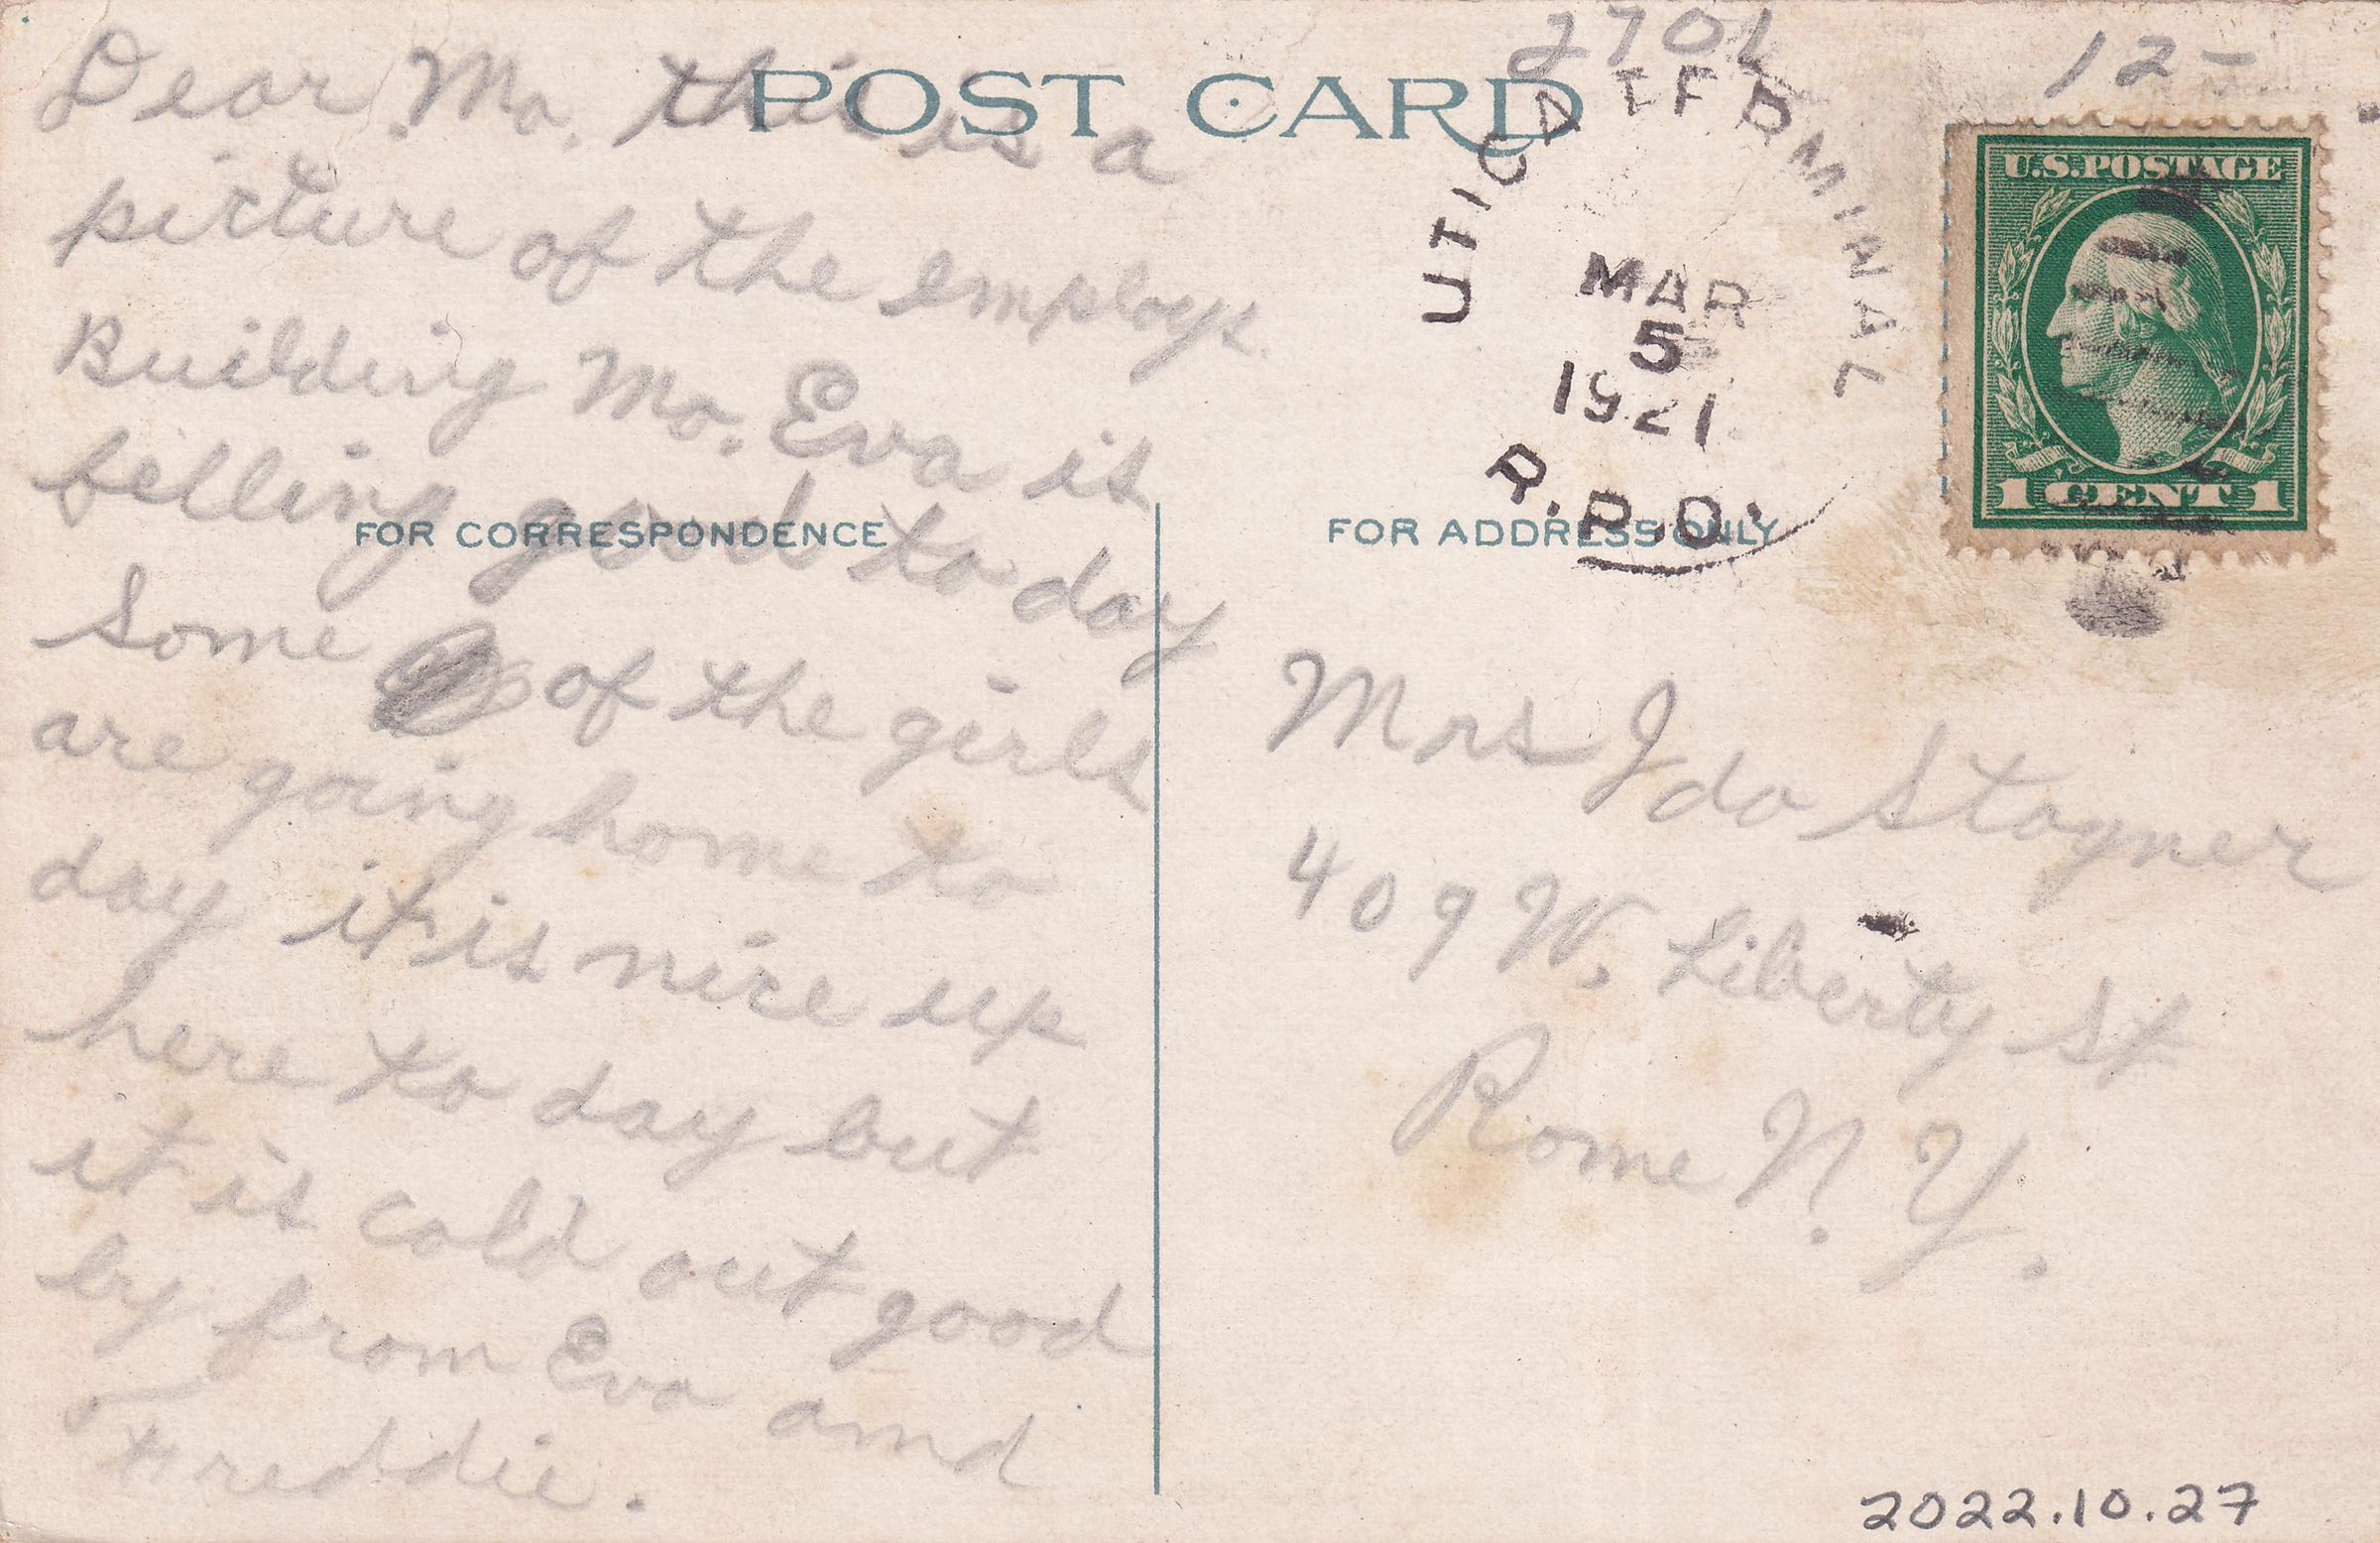 POST CARD
FOR CORRESPONDENCE
Dear Ma. this is a
picture of the employs.
Building Ma. Eva is
felling good to day
Some of the girls
are going home to
day it is nice up
here to day but
it is cold out good
by from Eva and
Freddie.
2701
12-
UTICA TERMINAL
MAR
5
1921
R.P.O.
U.S.POSTAGE
1 CENT 1
FOR ADDRESS ONLY
Mrs Ida Stagner
409 W. Liberty St
Rome N. Y.
2022.10.27